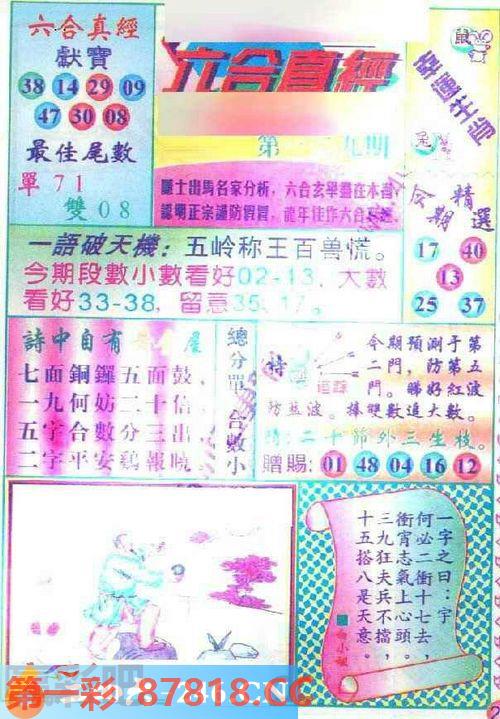 六合真經
獻寶
38 14 29 09
47 30 08
最佳尾數
單71
雙08
六合真經
第二 九期
屬士出馬名家分析，六合玄學盡在本書
認明正宗謹防假冒，龍年佳作六合真經
鼠
幸運生肖
兔
今期精選
17 40
13
25 37
一語破天機：五岭称王百兽慌。
今期段數小數看好02-13，大數
看好33-38，留意35、17。
詩中自有
七面銅鑼五面鼓、
一九何妨二十信、
五字合數分三出、
二字平安鷄報曉、
總分單、合數小
特
追踪
今期預測于第
二門，防第五
門。睇好紅波
防藍波。捧雙數追大數。
詩：二十節外三生枝。
贈賜：01 48 04 16 12
一字之曰：宇
何必二衝十七去，
衝宵志氣上心頭。
三九狂夫兵不擋，
十五搭八是天意。
第一彩 87818.CC